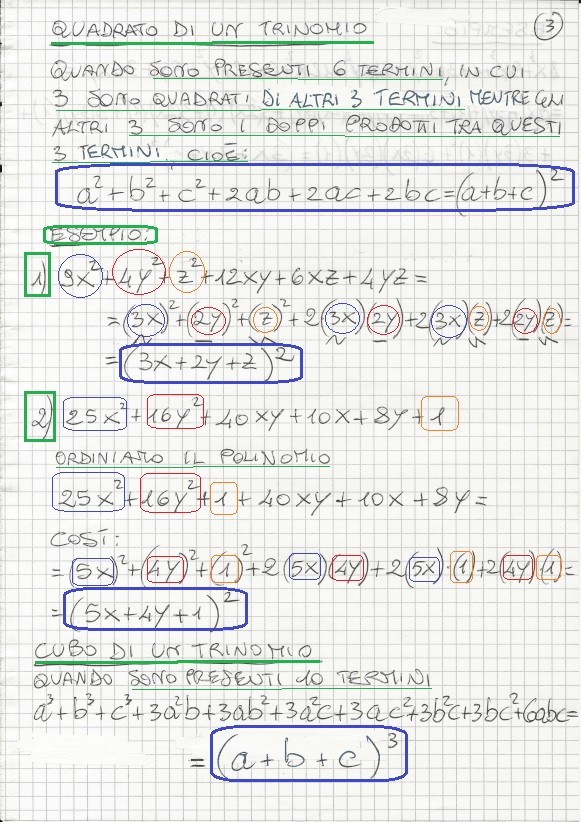 QUADRATO DI UN TRINOMIO
3
QUANDO SONO PRESENTI 6 TERMINI, IN CUI
3 SONO QUADRATI DI ALTRI 3 TERMINI MENTRE GLI
ALTRI 3 SONO I DOPPI PRODOTTI TRA QUESTI
3 TERMINI, CIOÈ:
a²+b²+c²+2ab+2ac+2bc=(a+b+c)²
ESEMPIO:
1) 9x²+4y²+z²+12xy+6xz+4yz=
=(3x)²+(2y)²+(z)²+2(3x)(2y)+2(3x)(z)+2(2y)(z)=
=(3x+2y+z)²
2) 25x²+16y²+40xy+10x+8y+1
ORDINIAMO IL POLINOMIO
25x²+16y²+1+40xy+10x+8y=
COSÍ:
=(5x)²+(4y)²+(1)²+2(5x)(4y)+2(5x)·(1)+2(4y)(1)=
=(5x+4y+1)²
CUBO DI UN TRINOMIO
QUANDO SONO PRESENTI 10 TERMINI
a³+b³+c³+3a²b+3ab²+3a²c+3ac²+3b²c+3bc²+6abc=
=(a+b+c)³